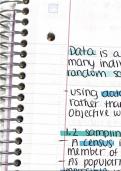 Data is a
many indivi
random sa
using
rather than
objective w
1.2 sampling
A census i
member of
As popula